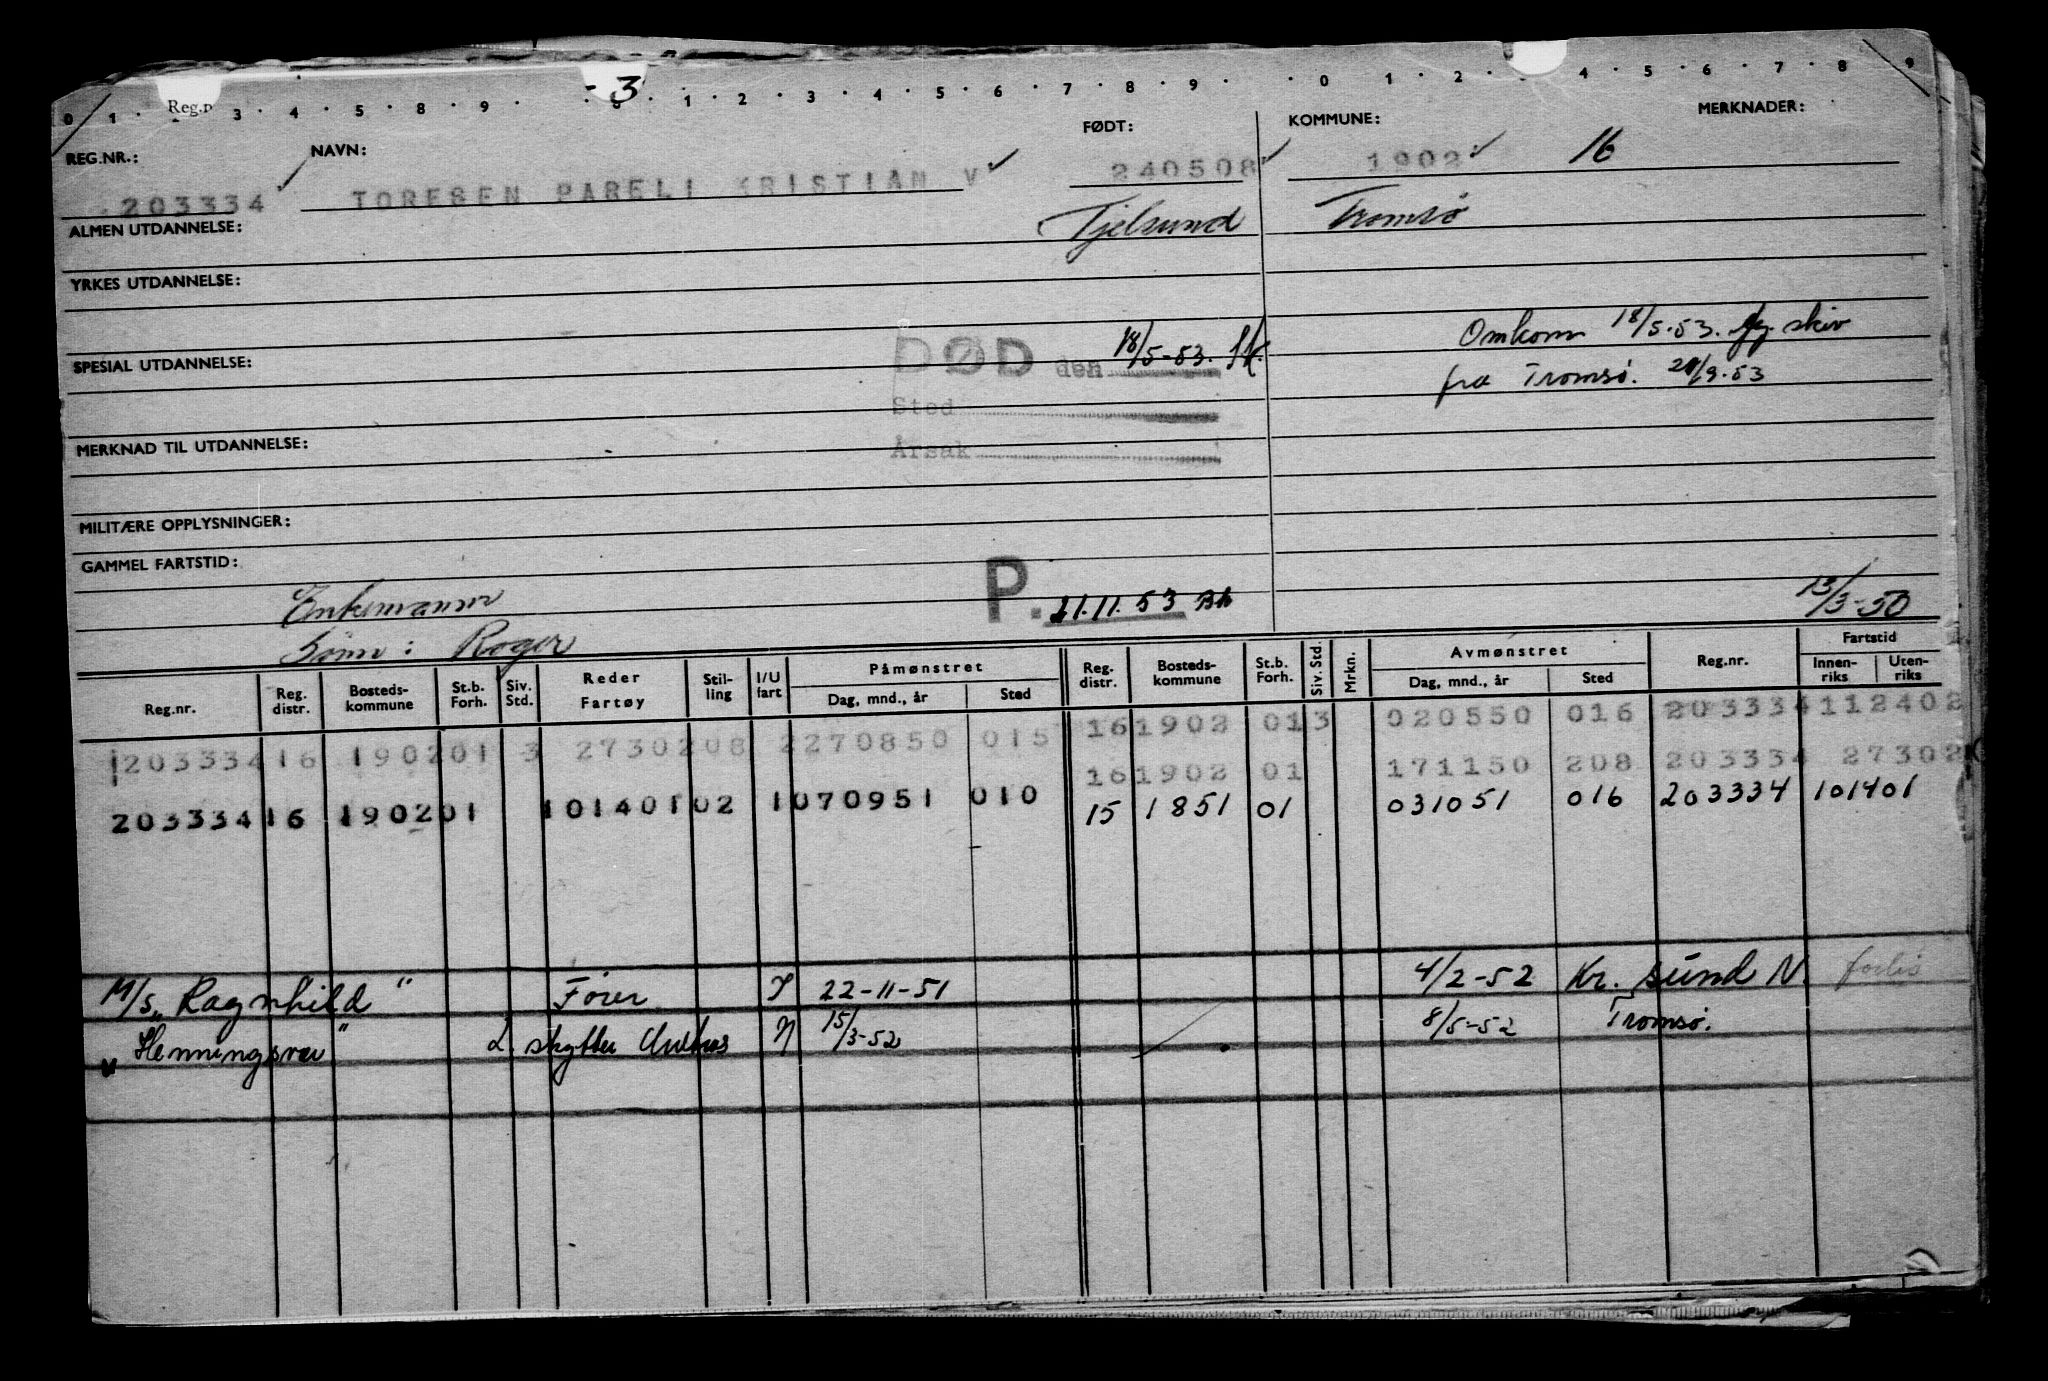 0 1 · 3 · 4 · 5 · 8 · 9 · 0 · 1 · 2 · 3 · 4 · 5 · 6 · 7 · 8 · 9 · · 0 · 1 · 2 · 4 · 5 · 6 · 7 · 8 · 9
- 3
REG.NR.: NAVN: FØDT: KOMMUNE: MERKNADER:
203334 TORESEN PARELI KRISTIAN V 240508 1902 16
ALMEN UTDANNELSE: Tjelsund Tromsø
YRKES UTDANNELSE:
Omkom 18/5-53. skiv
SPESIAL UTDANNELSE: DØD den 18/5-53.
fra Tromsø. 29/9-53
Sted
MERKNAD TIL UTDANNELSE: Årsak
MILITÆRE OPPLYSNINGER:
GAMMEL FARTSTID:
Enkemann P. 21.11.53 13/3-50
Sønn: Roger
Reg.nr. Reg. distr. Bosteds- kommune St.b. Forh. Siv. Std. Reder Fartøy Stil- ling I/U fart Påmønstret Dag, mnd., år Sted Reg. distr. Bosteds- kommune St.b. Forh. Siv. Std. Mrkn. Avmønstret Dag, mnd., år Sted Reg.nr. Fartstid Innen- riks Uten- riks
16 1902 01 3 020550 016 203334 112402
203334 16 1902 01 3 2730208 2 270850 015 16 1902 01 171150 208 203334 27302
203334 16 1902 01 101401 02 1 070951 010 15 1851 01 031051 016 203334 101401
M/s "Ragnhild" Fører 22-11-51 4/2-52 Kr. sund N. forlis
" Henningsvær" skytter 15/3-52 8/5-52 Tromsø.